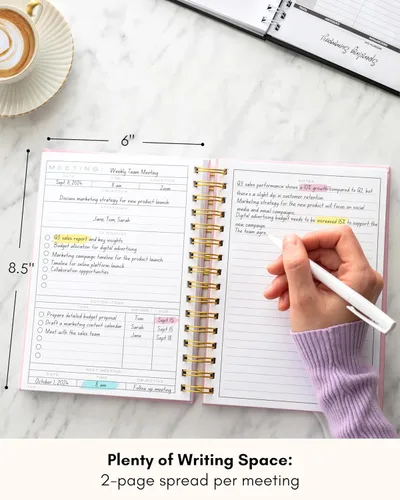 6"
8.5"
MEETING
Weekly Team Meeting
Sept. 11, 2024
11 am
Zoom
Discuss marketing strategy for new product launch
Jane, Tom, Sarah
Q3 sales report and key insights
Budget allocation for digital advertising
Marketing campaign timeline for the product launch
Timeline for online platforms launch
Collaboration opportunities
ACTION ITEMS
Prepare detailed budget proposal Tom Sept 15
Draft a marketing content calendar Sarah Sept 15
Meet with the sales team Jane Sept 18
NEXT MEETING
DATE TIME
October 1, 2024 11 am Follow up meeting
NOTES
Q3 sales performance shows a 10% growth compared to Q2, but
there's a slight dip in customer
Marketing strategy for the new product will focus on social
media and email campaigns.
Digital advertising budget needs to be increased 15% to support the
new campaign.
The team agre
Plenty of Writing Space:
2-page spread per meeting